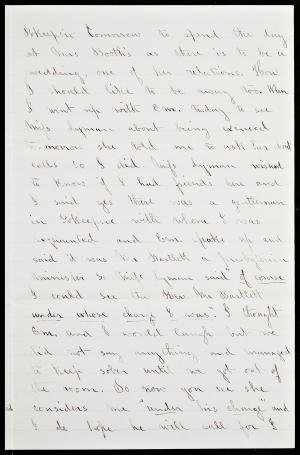 Po'keepsie tomorrow to spend the day
at Mrs Booth's as there is to be a
wedding, one of her relations. How
I should like to be away too. When
I went up with Em. today to see
Miss Lyman about being excused
tomorrow she told me to ask her about
calls so I did. Miss Lyman wished
to know if I had friends here and
I said yes there was a gentleman
in Po'keepsie with whom I was
acquainted and Em. spoke up and
said it was Mr Bartlett a Presbyterian
minister so Miss Lyman said "of course
I could see the Rev. Mr Bartlett
under whose charge I was". I thought
Em. and I would laugh but we
did not say anything and managed
to keep sober until we got out of
the room. So now you see she
considers me "under his charge" and
I do hope he will call for I